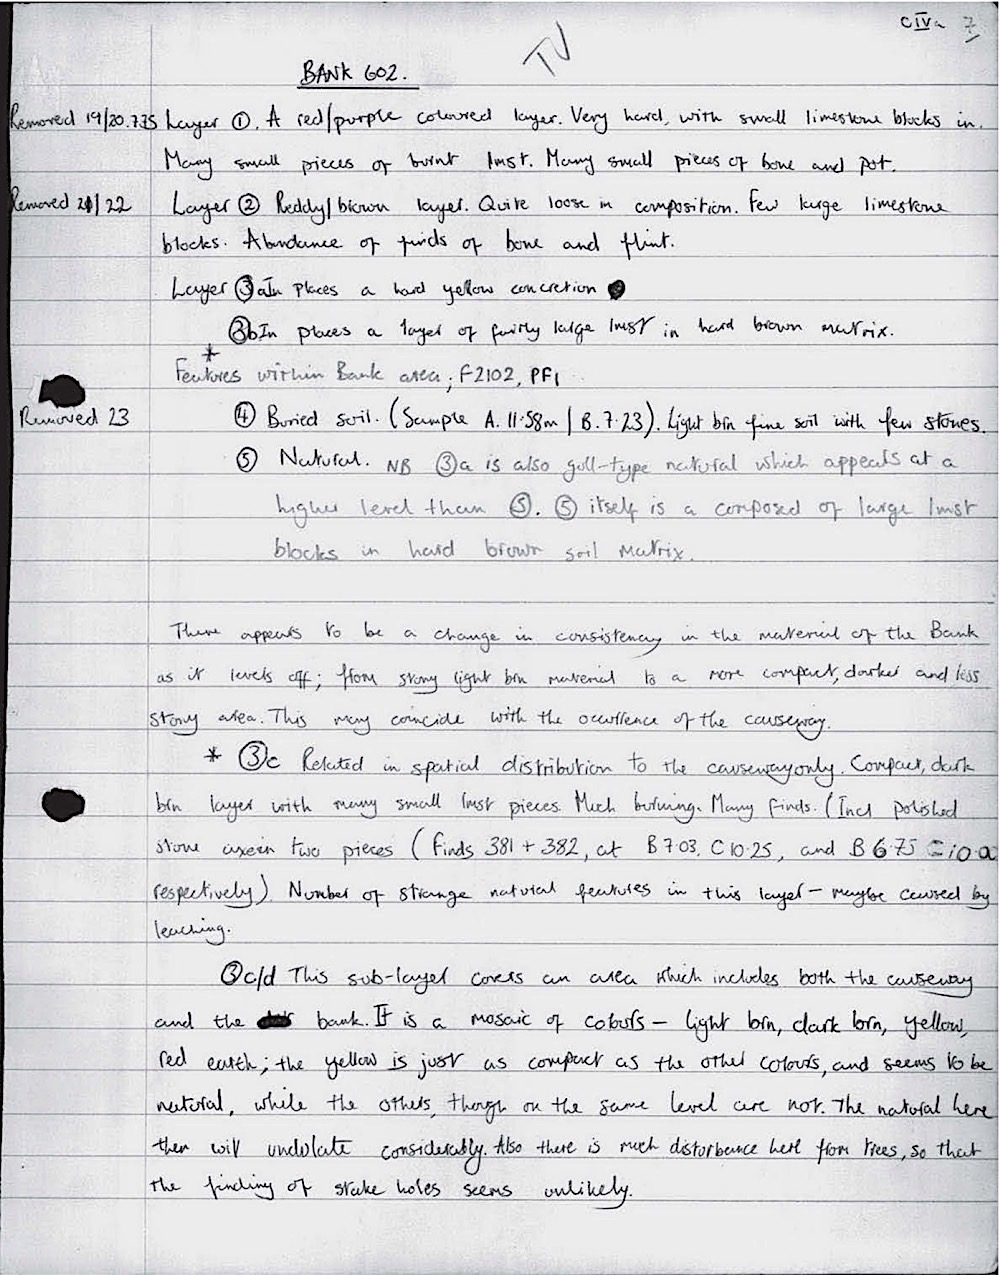 CIVa 7
TV
BANK 602.
Removed 19/20.7.75 Layer ①. A red/purple coloured layer. Very hard, with small limestone blocks in.
Many small pieces of burnt lmst. Many small pieces of bone and pot.
Removed 21/22 Layer ② Reddy/brown layer. Quite loose in composition. Few large limestone
blocks. Abundance of finds of bone and flint.
Layer ③a In places a hard yellow concretion
③b In places a layer of fairly large lmst in hard brown matrix.
*
Features within Bank area; F2102, PF1
Removed 23 ④ Buried soil. (Sample A. 11.58m / B. 7.23). Light brn fine soil with few stones.
⑤ Natural. NB ③a is also gull-type natural which appears at a
higher level than ⑤. ⑤ itself is a composed of large lmst
blocks in hard brown soil matrix.
There appears to be a change in consistency in the material of the Bank
as it levels off; from stony light brn material to a more compact, darker and less
stony area. This may coincide with the occurrence of the causeway.
* ③c Related in spatial distribution to the causeway only. Compact, dark
brn layer with many small lmst pieces. Much burning. Many finds. (Incl polished
stone axe in two pieces (finds 381 + 382, at B 7.03, C 10.25, and B 6.75
respectively). Number of strange natural features in this layer - maybe caused by
leaching.
③c/d This sub-layer covers an area which includes both the causeway
and the bank. It is a mosaic of colours - light brn, dark brn, yellow,
red earth; the yellow is just as compact as the other colours, and seems to be
natural, while the others, though on the same level are not. The natural here
then will undulate considerably. Also there is much disturbance here from trees, so that
the finding of stake holes seems unlikely.